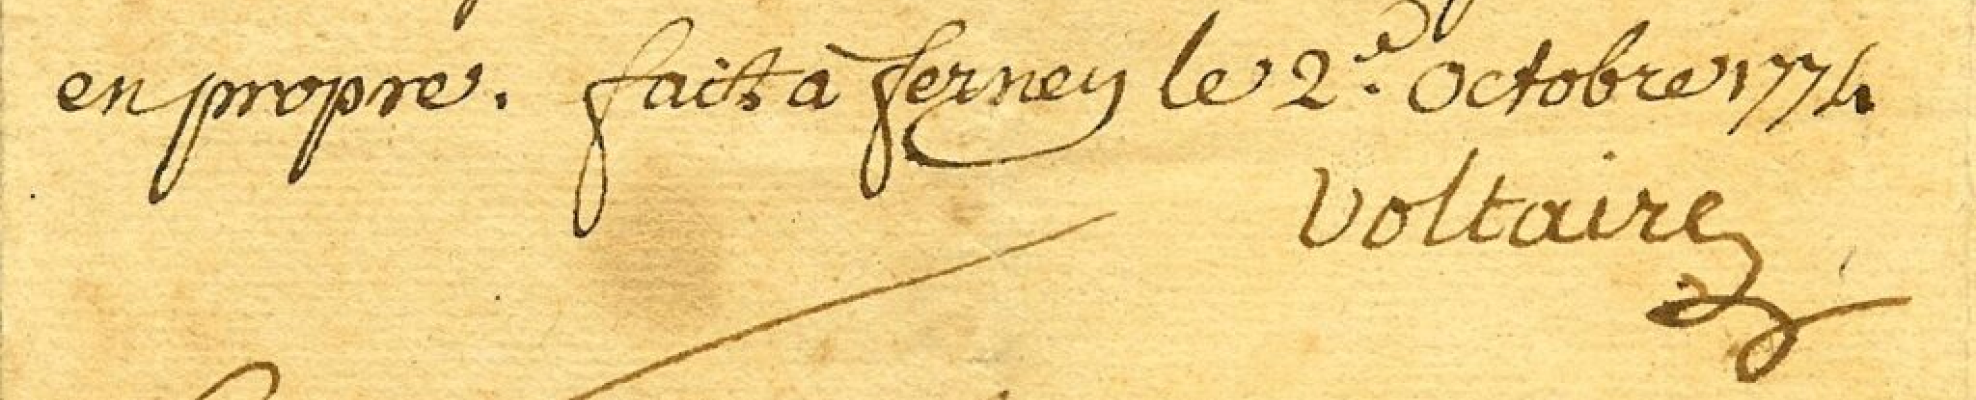 en propre. fait à ferney le 2.e octobre 1774
Voltaire